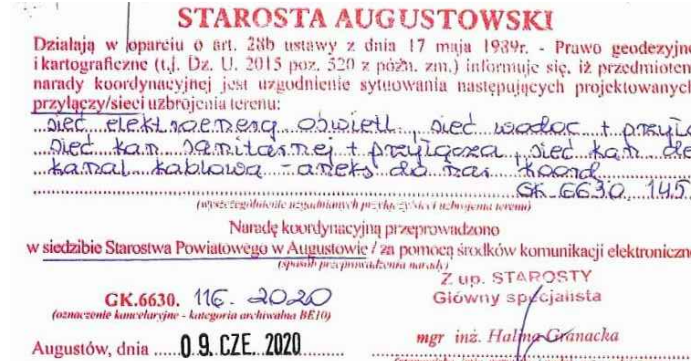 STAROSTA AUGUSTOWSKI
Działają w oparciu o art. 28b ustawy z dnia 17 maja 1989r. - Prawo geodezyjne
i kartograficzne (t.j. Dz. U. 2015 poz. 520 z późn. zm.) informuje się, iż przedmiotem
narady koordynacyjnej jest uzgodnienie sytuowania następujących projektowanych
przyłączy/sieci uzbrojenia terenu:
sieć elektroenerg oświetl, sieć wodoc + przyłą
sieć kan sanitarnej + przyłącza, sieć kan de
kanał kablowa - aneks do nar koord
GK 6630.145.
(wyszczególnienie uzgadnianych przyłączy/sieci uzbrojenia terenu)
Naradę koordynacyjną przeprowadzono
w siedzibie Starostwa Powiatowego w Augustowie / za pomocą środków komunikacji elektroniczne
(sposób przeprowadzenia narady)
Z up. STAROSTY
Główny specjalista
GK.6630. 116. 2020
(oznaczenie kancelaryjne - kategoria archiwalna BE10)
mgr inż. Halina Granacka
Augustów, dnia 09. CZE. 2020